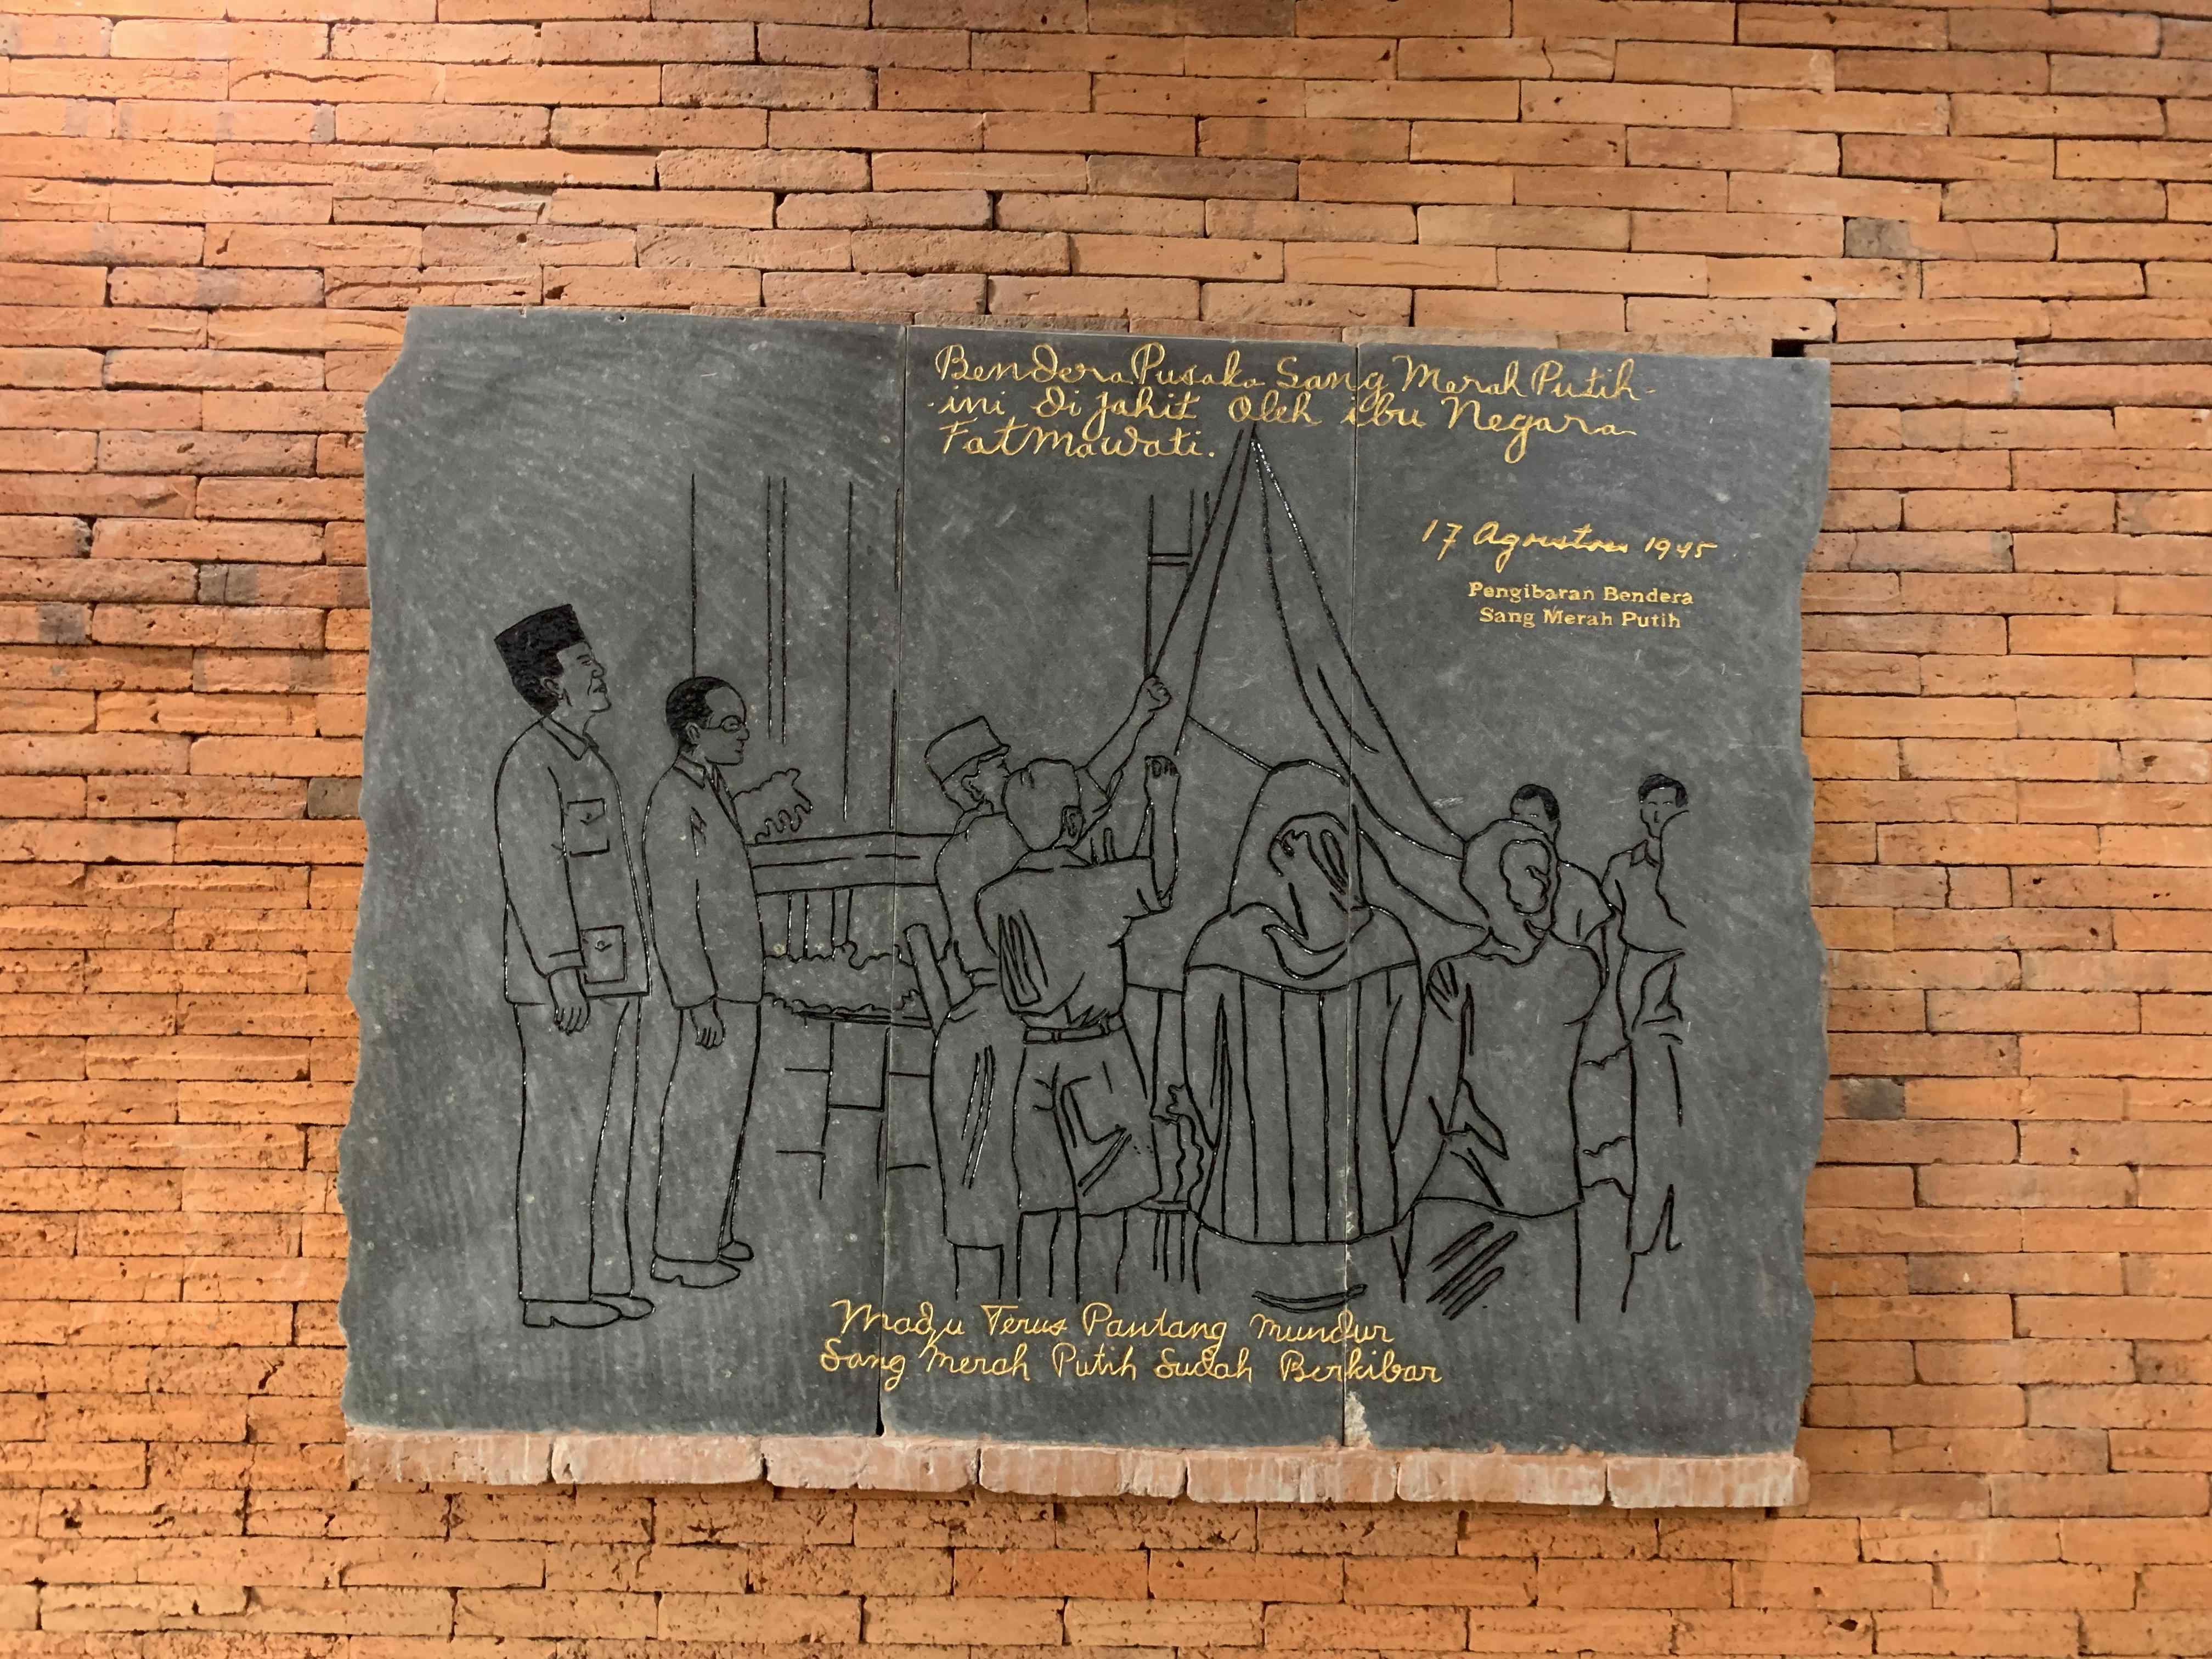 Bendera Pusaka Sang Merah Putih
ini di jahit oleh ibu Negara
Fatmawati.
17 Agustus 1945
Pengibaran Bendera
Sang Merah Putih
Madju Terus Pantang mundur
Sang merah Putih Sudah Berkibar